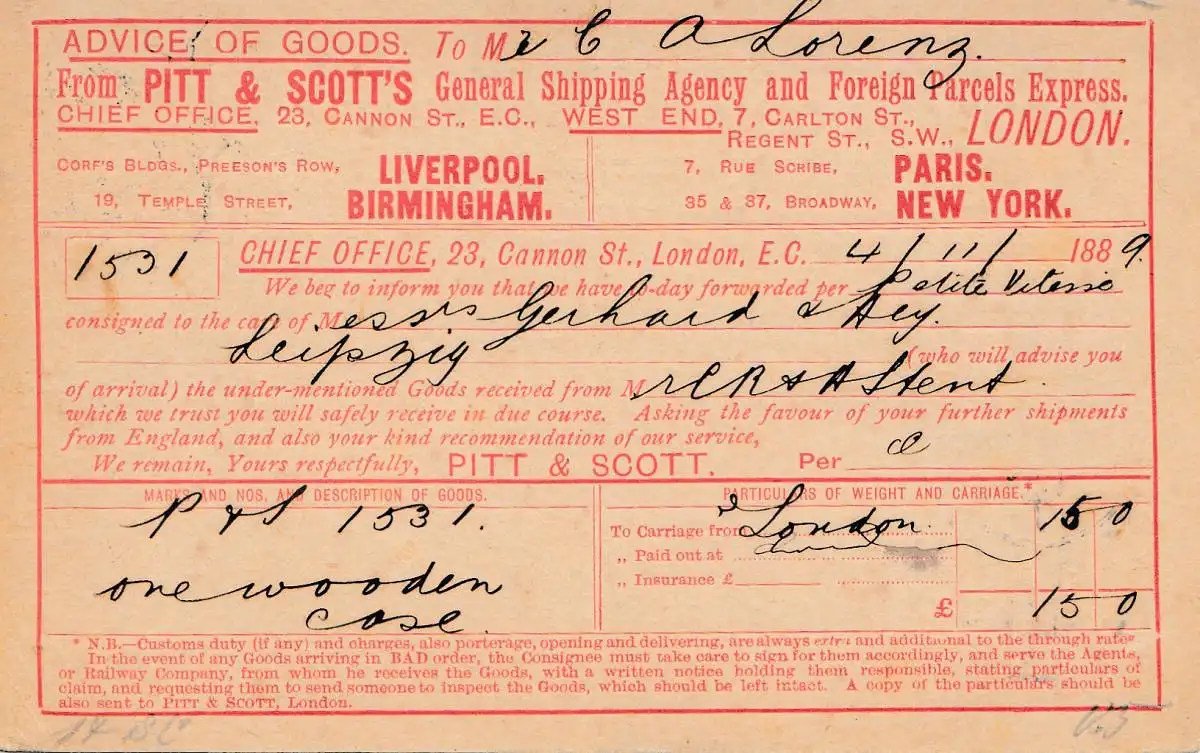 ADVICE OF GOODS. To Mr C A Lorenz.
From PITT & SCOTT'S General Shipping Agency and Foreign Parcels Express.
CHIEF OFFICE, 23, CANNON ST., E.C., WEST END, 7, CARLTON ST., REGENT ST., S.W., LONDON.
CORF'S BLDGS., PREESON'S ROW, LIVERPOOL.
19, TEMPLE STREET, BIRMINGHAM.
7, RUE SCRIBE, PARIS.
35 & 37, BROADWAY, NEW YORK.
1531
CHIEF OFFICE, 23, Cannon St., London, E.C. 4/11/1889.
We beg to inform you that we have to-day forwarded per Petite Vitesse
consigned to the care of Messrs Gerhard & Hey.
Leipzig (who will advise you
of arrival) the under-mentioned Goods received from Mr C R & A Stent
which we trust you will safely receive in due course. Asking the favour of your further shipments
from England, and also your kind recommendation of our service,
We remain, Yours respectfully, PITT & SCOTT. Per
MARKS AND NOS. AND DESCRIPTION OF GOODS.
P & S 1531.
one wooden
case.
PARTICULARS OF WEIGHT AND CARRIAGE.*
To Carriage from London. 15 0
„ Paid out at
„ Insurance £
£ 15 0
* N.B.—Customs duty (if any) and charges, also porterage, opening and delivering, are always extra and additional to the through rates
In the event of any Goods arriving in BAD order, the Consignee must take care to sign for them accordingly, and serve the Agents,
or Railway Company, from whom he receives the Goods, with a written notice holding them responsible, stating particulars of
claim, and requesting them to send someone to inspect the Goods, which should be left intact. A copy of the particulars should be
also sent to PITT & SCOTT, London.